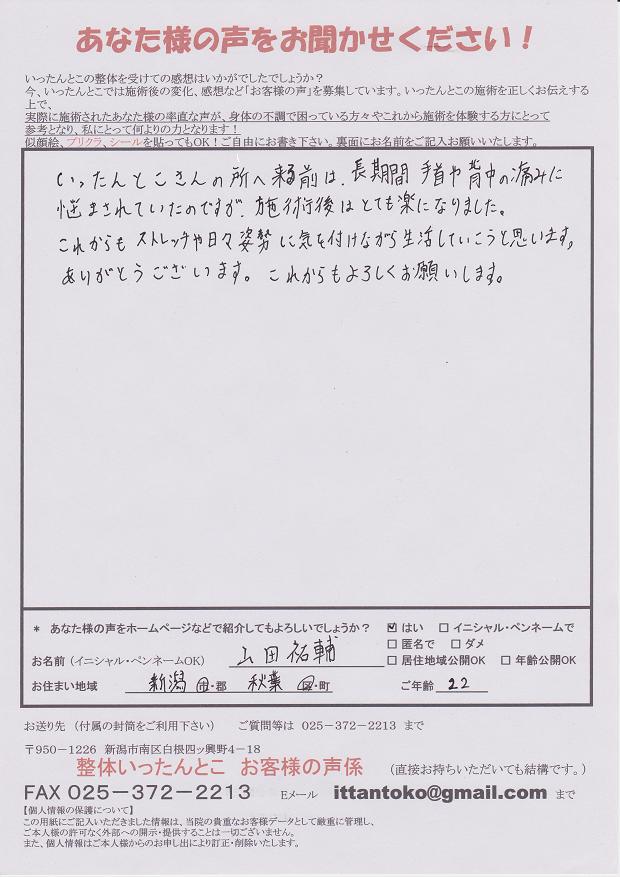 あなた様の声をお聞かせください！
いったんとこの整体を受けての感想はいかがでしたでしょうか？
今、いったんとこでは施術後の変化、感想など「お客様の声」を募集しています。いったんとこの施術を正しくお伝えする
上で、
実際に施術されたあなた様の率直な声が、身体の不調で困っている方々やこれから施術を体験する方にとって
参考となり、私にとって何よりの力となります！
似顔絵、プリクラ、シールを貼ってもOK！ご自由にお書き下さい。裏面にお名前をご記入お願いいたします。
いったんとこさんの所へ来る前は、長期間 手首や背中の痛みに
悩まされていたのですが、施術後はとても楽になりました。
これからも ストレッチや日々姿勢に気を付けながら生活していこうと思います。
ありがとうございます。これからもよろしくお願いします。
＊ あなた様の声をホームページなどで紹介してもよろしいでしょうか？ ☑ はい □ イニシャル・ペンネームで
□ 匿名で □ ダメ
お名前（イニシャル・ペンネームOK） 山田祐輔 □ 居住地域公開OK □ 年齢公開OK
お住まい地域 新潟 市・郡 秋葉 区・町 ご年齢 22
お送り先 （付属の封筒をご利用下さい） ご質問等は 025－372－2213 まで
〒950－1226 新潟市南区白根四ッ興野4－18
整体いったんとこ お客様の声係 （直接お持ちいただいても結構です。）
FAX 025－372－2213 Eメール ittantoko@gmail.com まで
【個人情報の保護について】
この用紙にご記入いただきました情報は、当院の貴重なお客様データとして厳重に管理し、
ご本人様の許可なく外部への開示・提供することは一切ございません。
また、個人情報はご本人様からのお申し出により訂正・削除いたします。